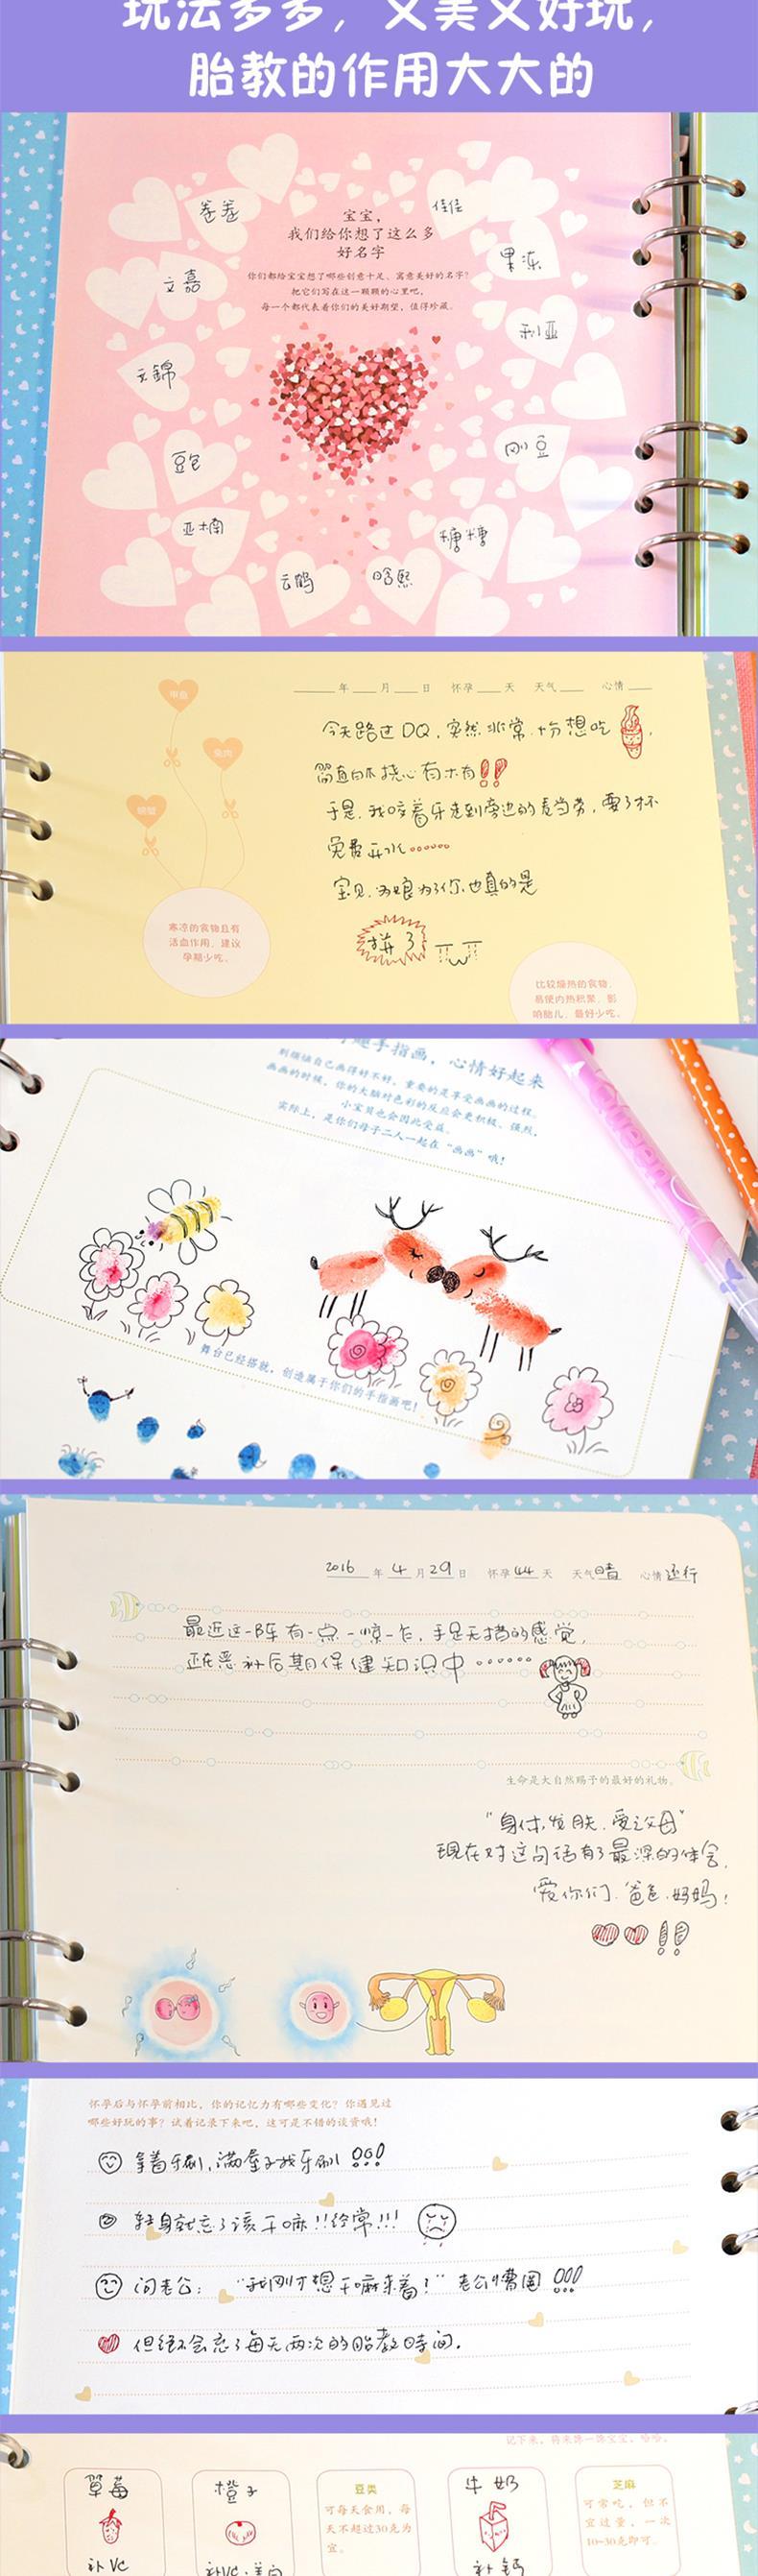 玩法多多，又美又好玩，
胎教的作用大大的
卷卷
佳佳
宝宝，
我们给你想了这么多
好名字
果冻
你们都给宝宝想了哪些创意十足、寓意美好的名字?
把它们写在这一颗颗的心里吧，
每一个都代表着你们的美好期望，值得珍藏。
文嘉
利亚
文錦
刚豆
豆包
亚楠
糖糖
云鹤
晗熙
年 月 日 怀孕 天 天气 心情
兔肉
螃蟹
今天路过DQ，突然.非常.十分想吃
简直百爪挠心有木有!!
于是.我咬着牙走到旁边的麦当劳，要了杯
免费开水……
宝贝.为娘为了你.也真的是
拼了
寒凉的食物且有
活血作用，建议
孕期少吃。
比较燥热的食物，
易使内热积聚，影
响胎儿，最好少吃。
趣手指画，心情好起来
别担心自己画得好不好，重要的是享受画画的过程。
画画的时候，你的大脑对色彩的反应会更积极、强烈，
小宝贝也会因此受益。
实际上，是你们母子二人一起在“画画”哦!
Queen
舞台已经搭就，创造属于你们的手指画吧!
2016 年 4 月 29 日 怀孕 44 天 天气 晴 心情 还行
最近这一阵有一点一惊一乍，手足无措的感觉，
还在恶补后期保健知识中……
生命是大自然赐予的最好的礼物。
“身体发肤.受之父母”
现在对这句话有了最深的体会.
爱你们.爸爸.妈妈!
!!
怀孕后与怀孕前相比，你的记忆力有哪些变化？你遇见过
哪些好玩的事？试着记录下来吧，这可是不错的谈资哦!
拿着牙刷，满屋子找牙刷!!!
转身就忘了该干嘛!!经常!!!
问老公：“我刚才想干嘛来着?”老公懵圈!!!
但绝不会忘了每天两次的胎教时间.
记下来，将来馋一馋宝宝，哈哈。
草莓
补VC
橙子
补VC.美白
豆类
可每天食用，每
天不超过30克为
宜。
牛奶
补钙
芝麻
可常吃，但不
宜过量，一次
10-30克即可。